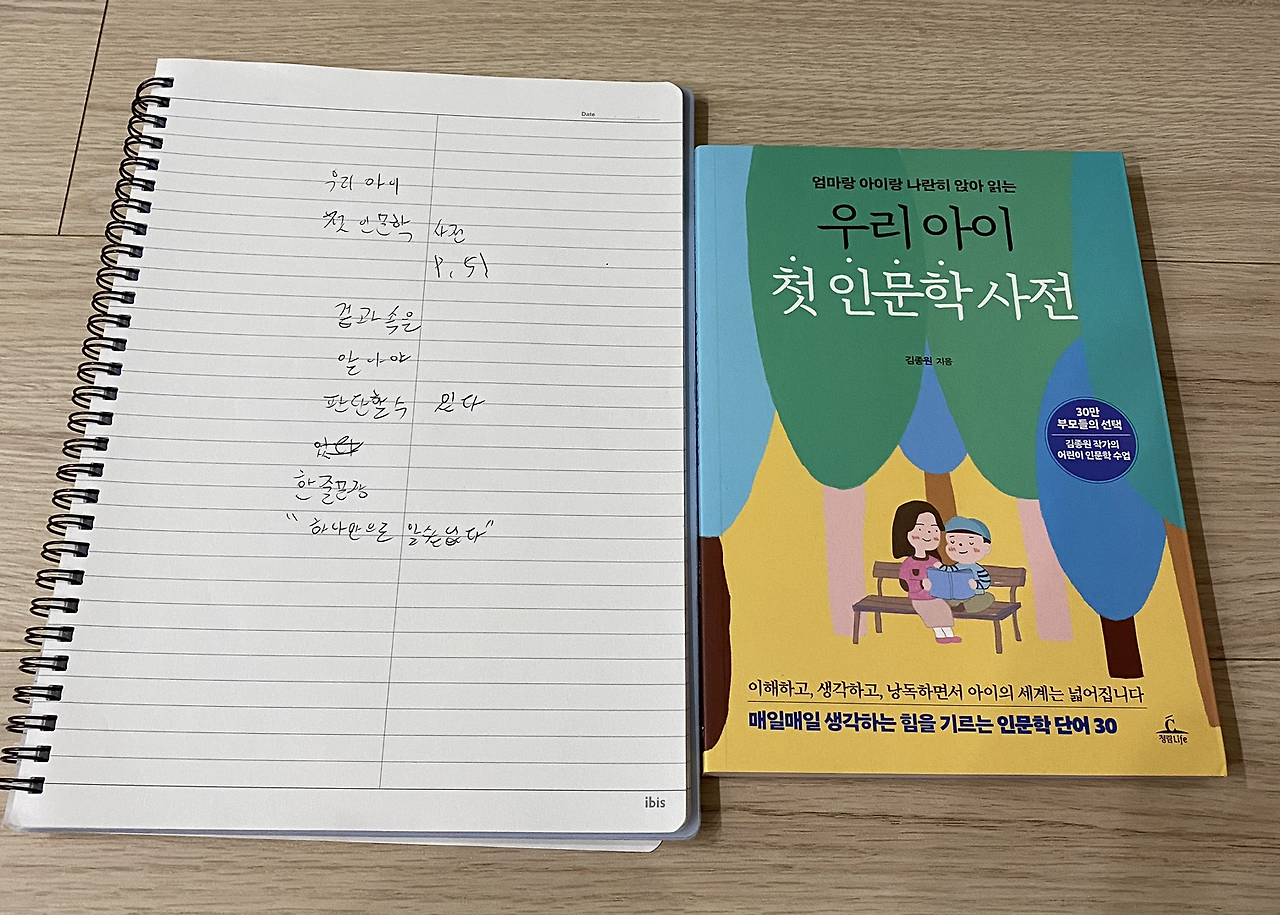 Date
우리 아이
첫 인문학 사전
P. 51
겉과 속은
알아야
판단할 수 있다
한줄문장
"하나만으로 알 수 없다"
ibis
엄마랑 아이랑 나란히 앉아 읽는
우리 아이
첫 인문학 사전
김종원 지음
30만
부모들의 선택
김종원 작가의
어린이 인문학 수업
이해하고, 생각하고, 낭독하면서 아이의 세계는 넓어집니다
매일매일 생각하는 힘을 기르는 인문학 단어 30
청림Life